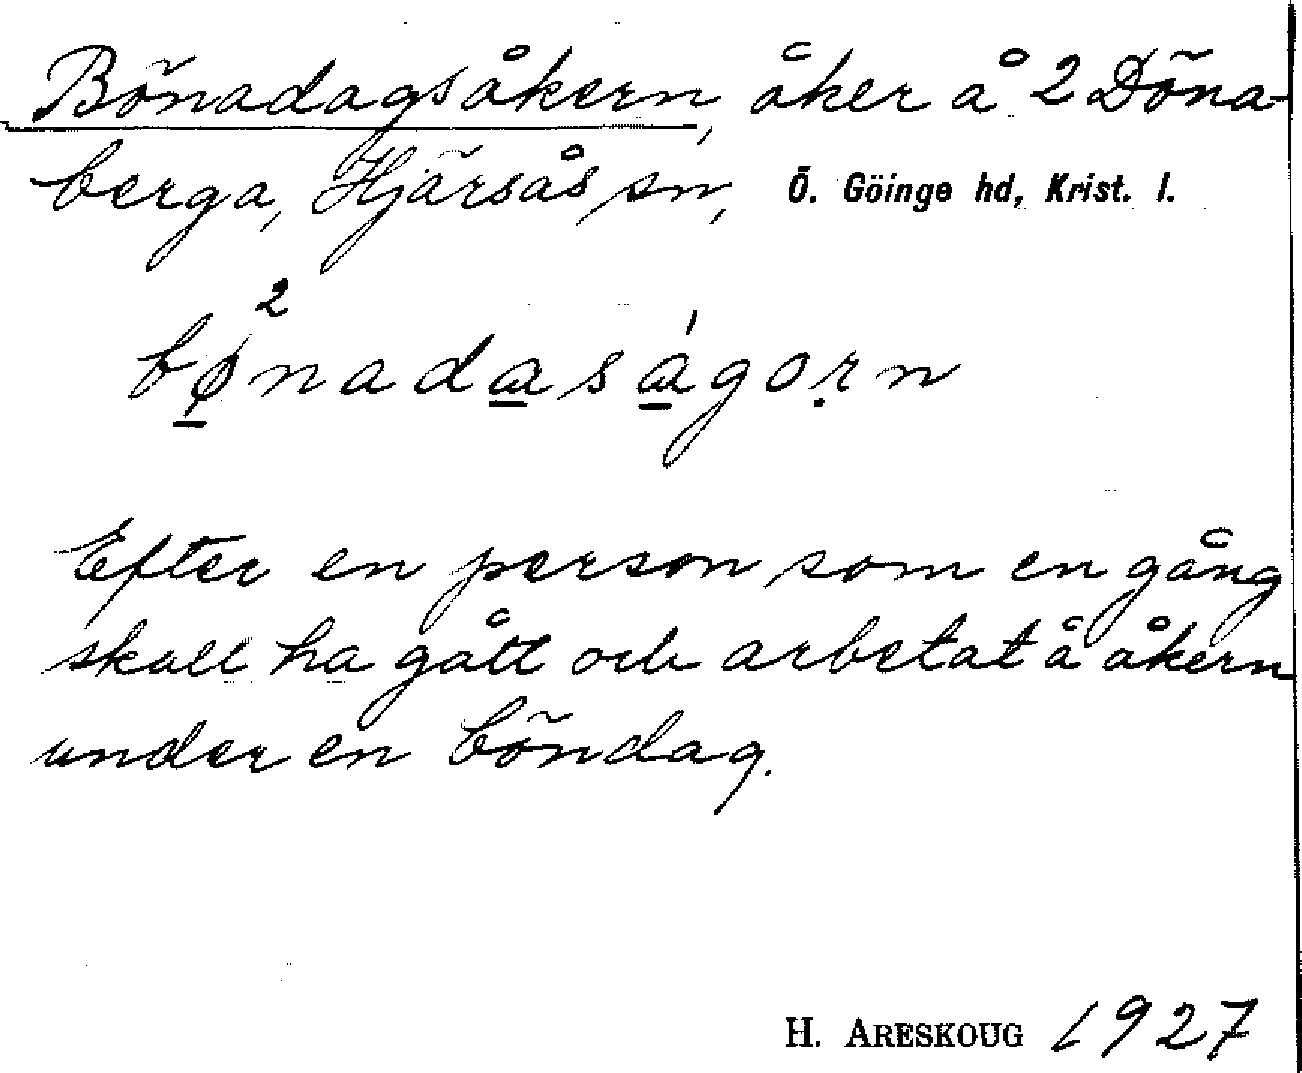 Bönadagsåkern, åker å 2 Döna-
berga, Hjärsås sn, Ö. Göinge hd, Krist. l.
bø²nadasa̍gorn
Efter en person som en gång
skall ha gått och arbetat å åkern
under en böndag.
H. ARESKOUG 1927